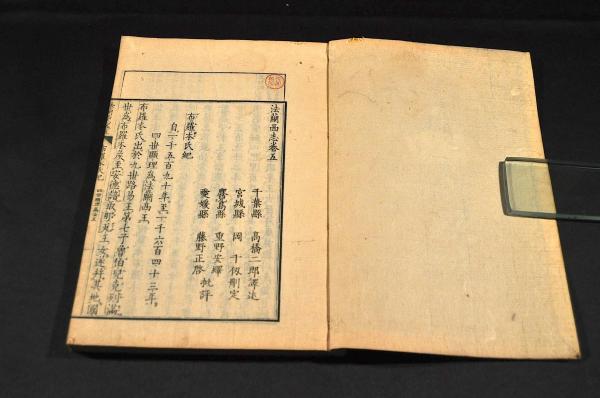 法蘭西志卷五
千葉縣 高橋二郎譯述
宮城縣 岡 千仭刪定
鹿兒島縣 重野安繹
愛媛縣 藤野正啓 批評
布羅本氏紀
自一千五百九十年至一千六百四十三年
四世顯理為法蘭西王
布羅本氏出於九世路易王第七子魯伯兒克列滿
世為布羅本矦至安德諾取那瓦王女遂幷其地國